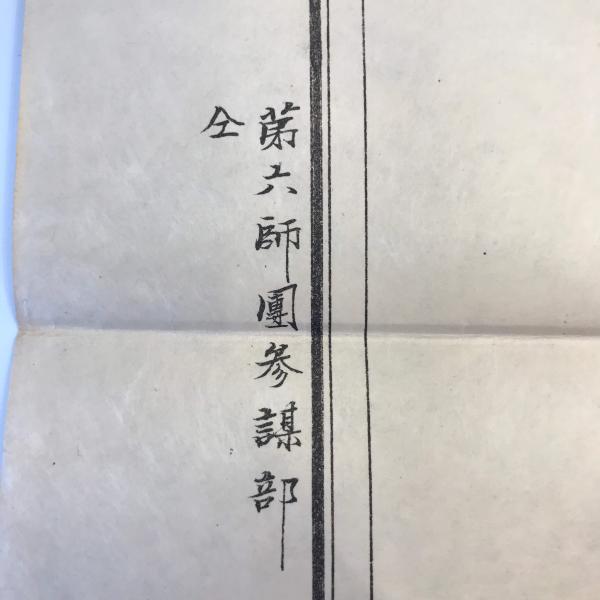 第六師團參謀部
仝